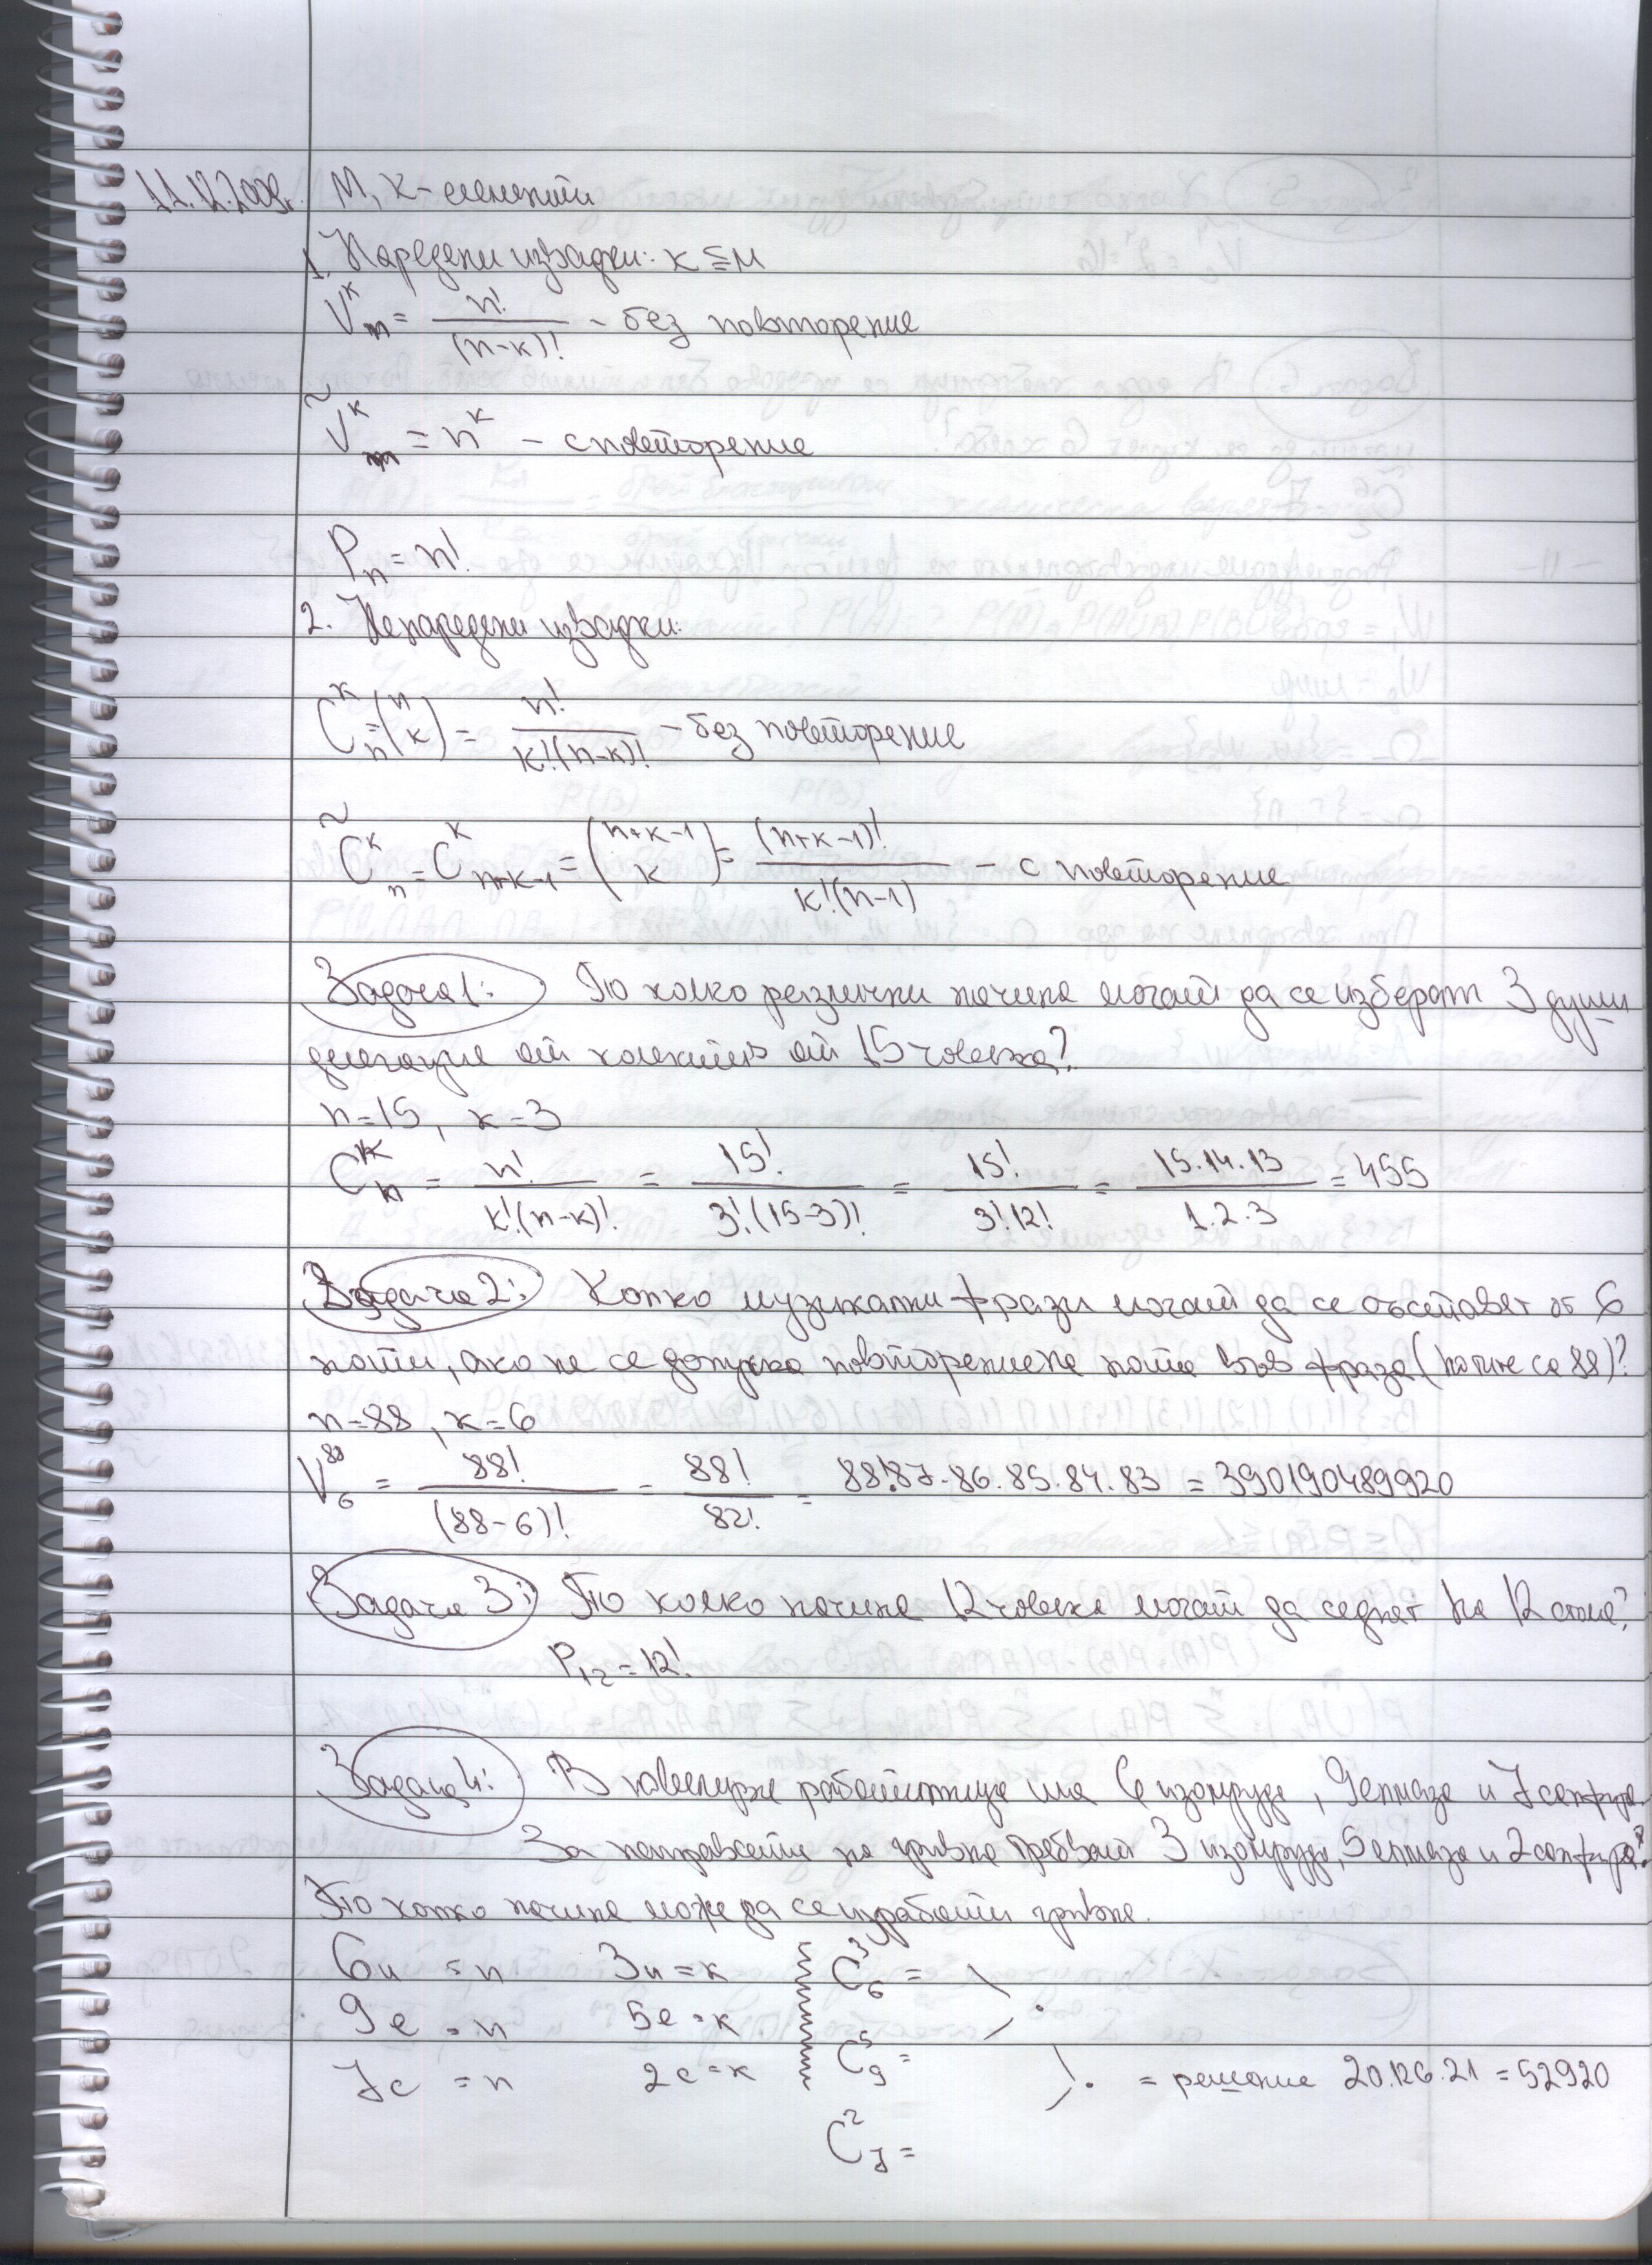 11.12.2009г. М, К-елементи
1. Наредени извадки: к ≤ м
V_n^k = n!/(n-k)! - без повторение
Ṽ_n^k = n^k - с повторение
P_n = n!
2. Ненаредени извадки:
C_n^k = (n k) = n!/k!(n-k)! - без повторение
C̃_n^k = C_{n+k-1}^k = (n+k-1 k) = (n+k-1)!/k!(n-1) - с повторение
Задача 1: По колко различни начина могат да се изберат 3 души
делегация от колектив от 15 човека?
n=15, k=3
C_n^k = n!/k!.(n-k)! = 15!/3!.(15-3)! = 15!/3!.12! = 15.14.13/1.2.3 = 455
Задача 2: Колко музикални фрази могат да се съставят от 6
ноти, ако не се допуска повторение на нота във фраза (ноти са 88)?
n=88, k=6
V_6^88 = 88!/(88-6)! = 88!/82! = 88.87.86.85.84.83 = 390190489920
Задача 3: По колко начина 12 човека могат да седнат на 12 стола?
P_12 = 12!
Задача 4: В ювелирна работилница има 6 изомруда, 9 елмаза и 7 сапфира.
За направата на гривна трябват 3 изомруда, 5 елмаза и 2 сапфира?
По колко начина може да се изработи гривна.
6и = n 3и = k C_6^3 =
9е = n 5е = k C_9^5 =
7с = n 2с = k = решение 20.126.21 = 52920
C_7^2 =